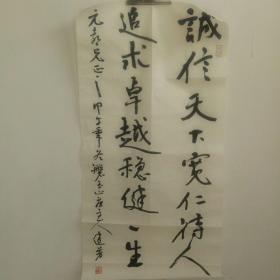 誠信天下寬仁待人
追求卓越穏健一生
元喜兄正之甲午年冬